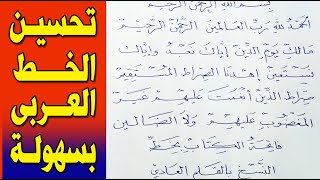 تحسين
الخط
العربى
بسهولة
بسم الله الرحمن الرحيم
الحمد لله رب العالمين الرحمن الرحيم
مالك يوم الدين إياك نعبد وإياك
نستعين إهدنا الصراط المستقيم
صراط الذين أنعمت عليهم غير
المغضوب عليهم ولا الضالين
فاتحة الكتاب بخط
النسخ بالقلم العادي